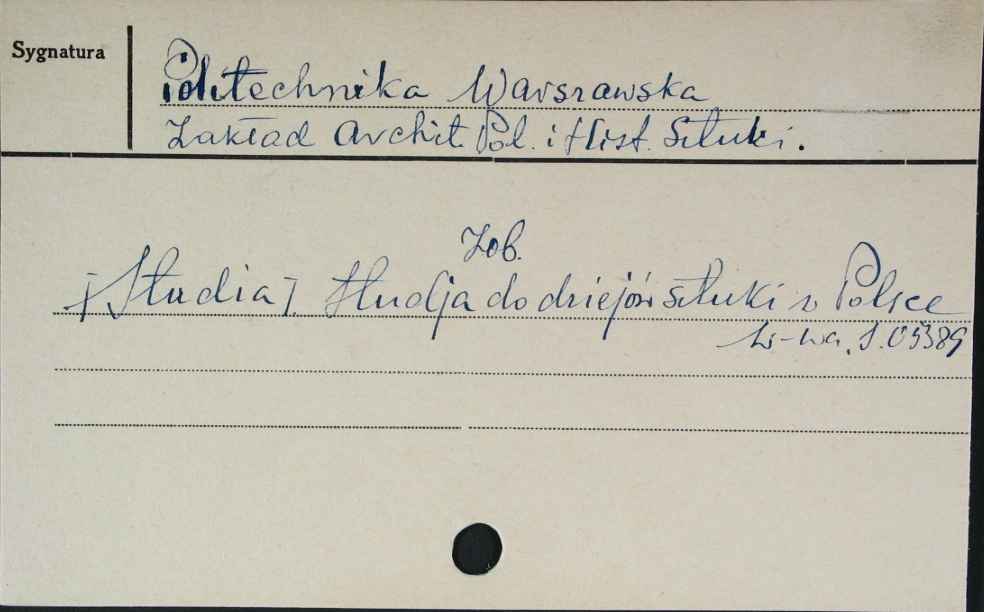 Sygnatura
Politechnika Warszawska
Zakład Archit. Pol. i Hist. Sztuki.
Zob.
[Studia]. Studja do dziejów sztuki w Polsce
W-wa. S.05389